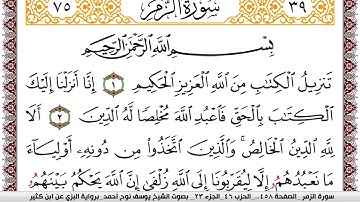 ٣٩ سُورَةُ الزُّمَرِ ٧٥
بِسْمِ اللَّهِ الرَّحْمَٰنِ الرَّحِيمِ
تَنزِيلُ الْكِتَٰبِ مِنَ اللَّهِ الْعَزِيزِ الْحَكِيمِ ١ إِنَّا أَنزَلْنَا إِلَيْكَ
الْكِتَٰبَ بِالْحَقِّ فَاعْبُدِ اللَّهَ مُخْلِصًا لَّهُ الدِّينَ ٢ أَلَا
لِلَّهِ الدِّينُ الْخَالِصُ وَالَّذِينَ اتَّخَذُوا مِن دُونِهِ أَوْلِيَاءَ
مَا نَعْبُدُهُمُ إِلَّا لِيُقَرِّبُونَا إِلَى اللَّهِ زُلْفَىٰ إِنَّ اللَّهَ يَحْكُمُ بَيْنَهُمُ
سورة الزمر _الصفحة ٤٥٨_ الحزب ٤٦_الجزء ٢٣_ بصوت الشيخ يوسف نوح احمد_ برواية البزي عن ابن كثير